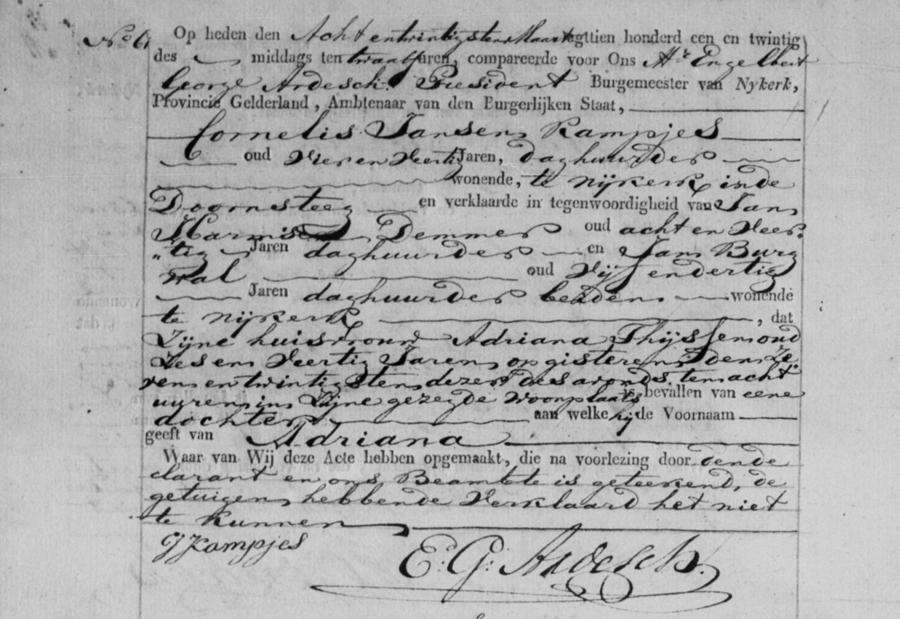 No 61 Op heden den Acht en twintigsten Maart agttien honderd een en twintig
des middags ten twaalf uren, compareerde voor Ons Mr Engelbert
George Ardesch President Burgemeester van Nykerk,
Provincie Gelderland, Ambtenaar van den Burgerlijken Staat,
Cornelis Jansen Kampjes
oud Vier en Veertig Jaren, daghuurder
wonende, te Nijkerk in de
Doornsteeg en verklaarde in tegenwoordigheid van Jan
Harmsen Demmer oud acht en Veer-
"tig Jaren daghuurder en Jan Burg
wal oud Vijf en dertig
Jaren daghuurder beiden wonende
te Nijkerk, dat
Zijne huisvrouw Adriana Thijssen oud
Zes en Veertig Jaren op gisteren den Ze
ven en twintigsten dezer des avonds ten acht
uuren in Zijne gezegde woonplaats is bevallen van eene
dochter aan welke hij de Voornaam
geeft van Adriana
Waar van Wij deze Acte hebben opgemaakt, die na voorlezing door den de
clarant en ons Beambte is geteekend, de
getuigen hebbende Verklaard het niet
te kunnen
CJ Kampjes
E: G: Ardesch.